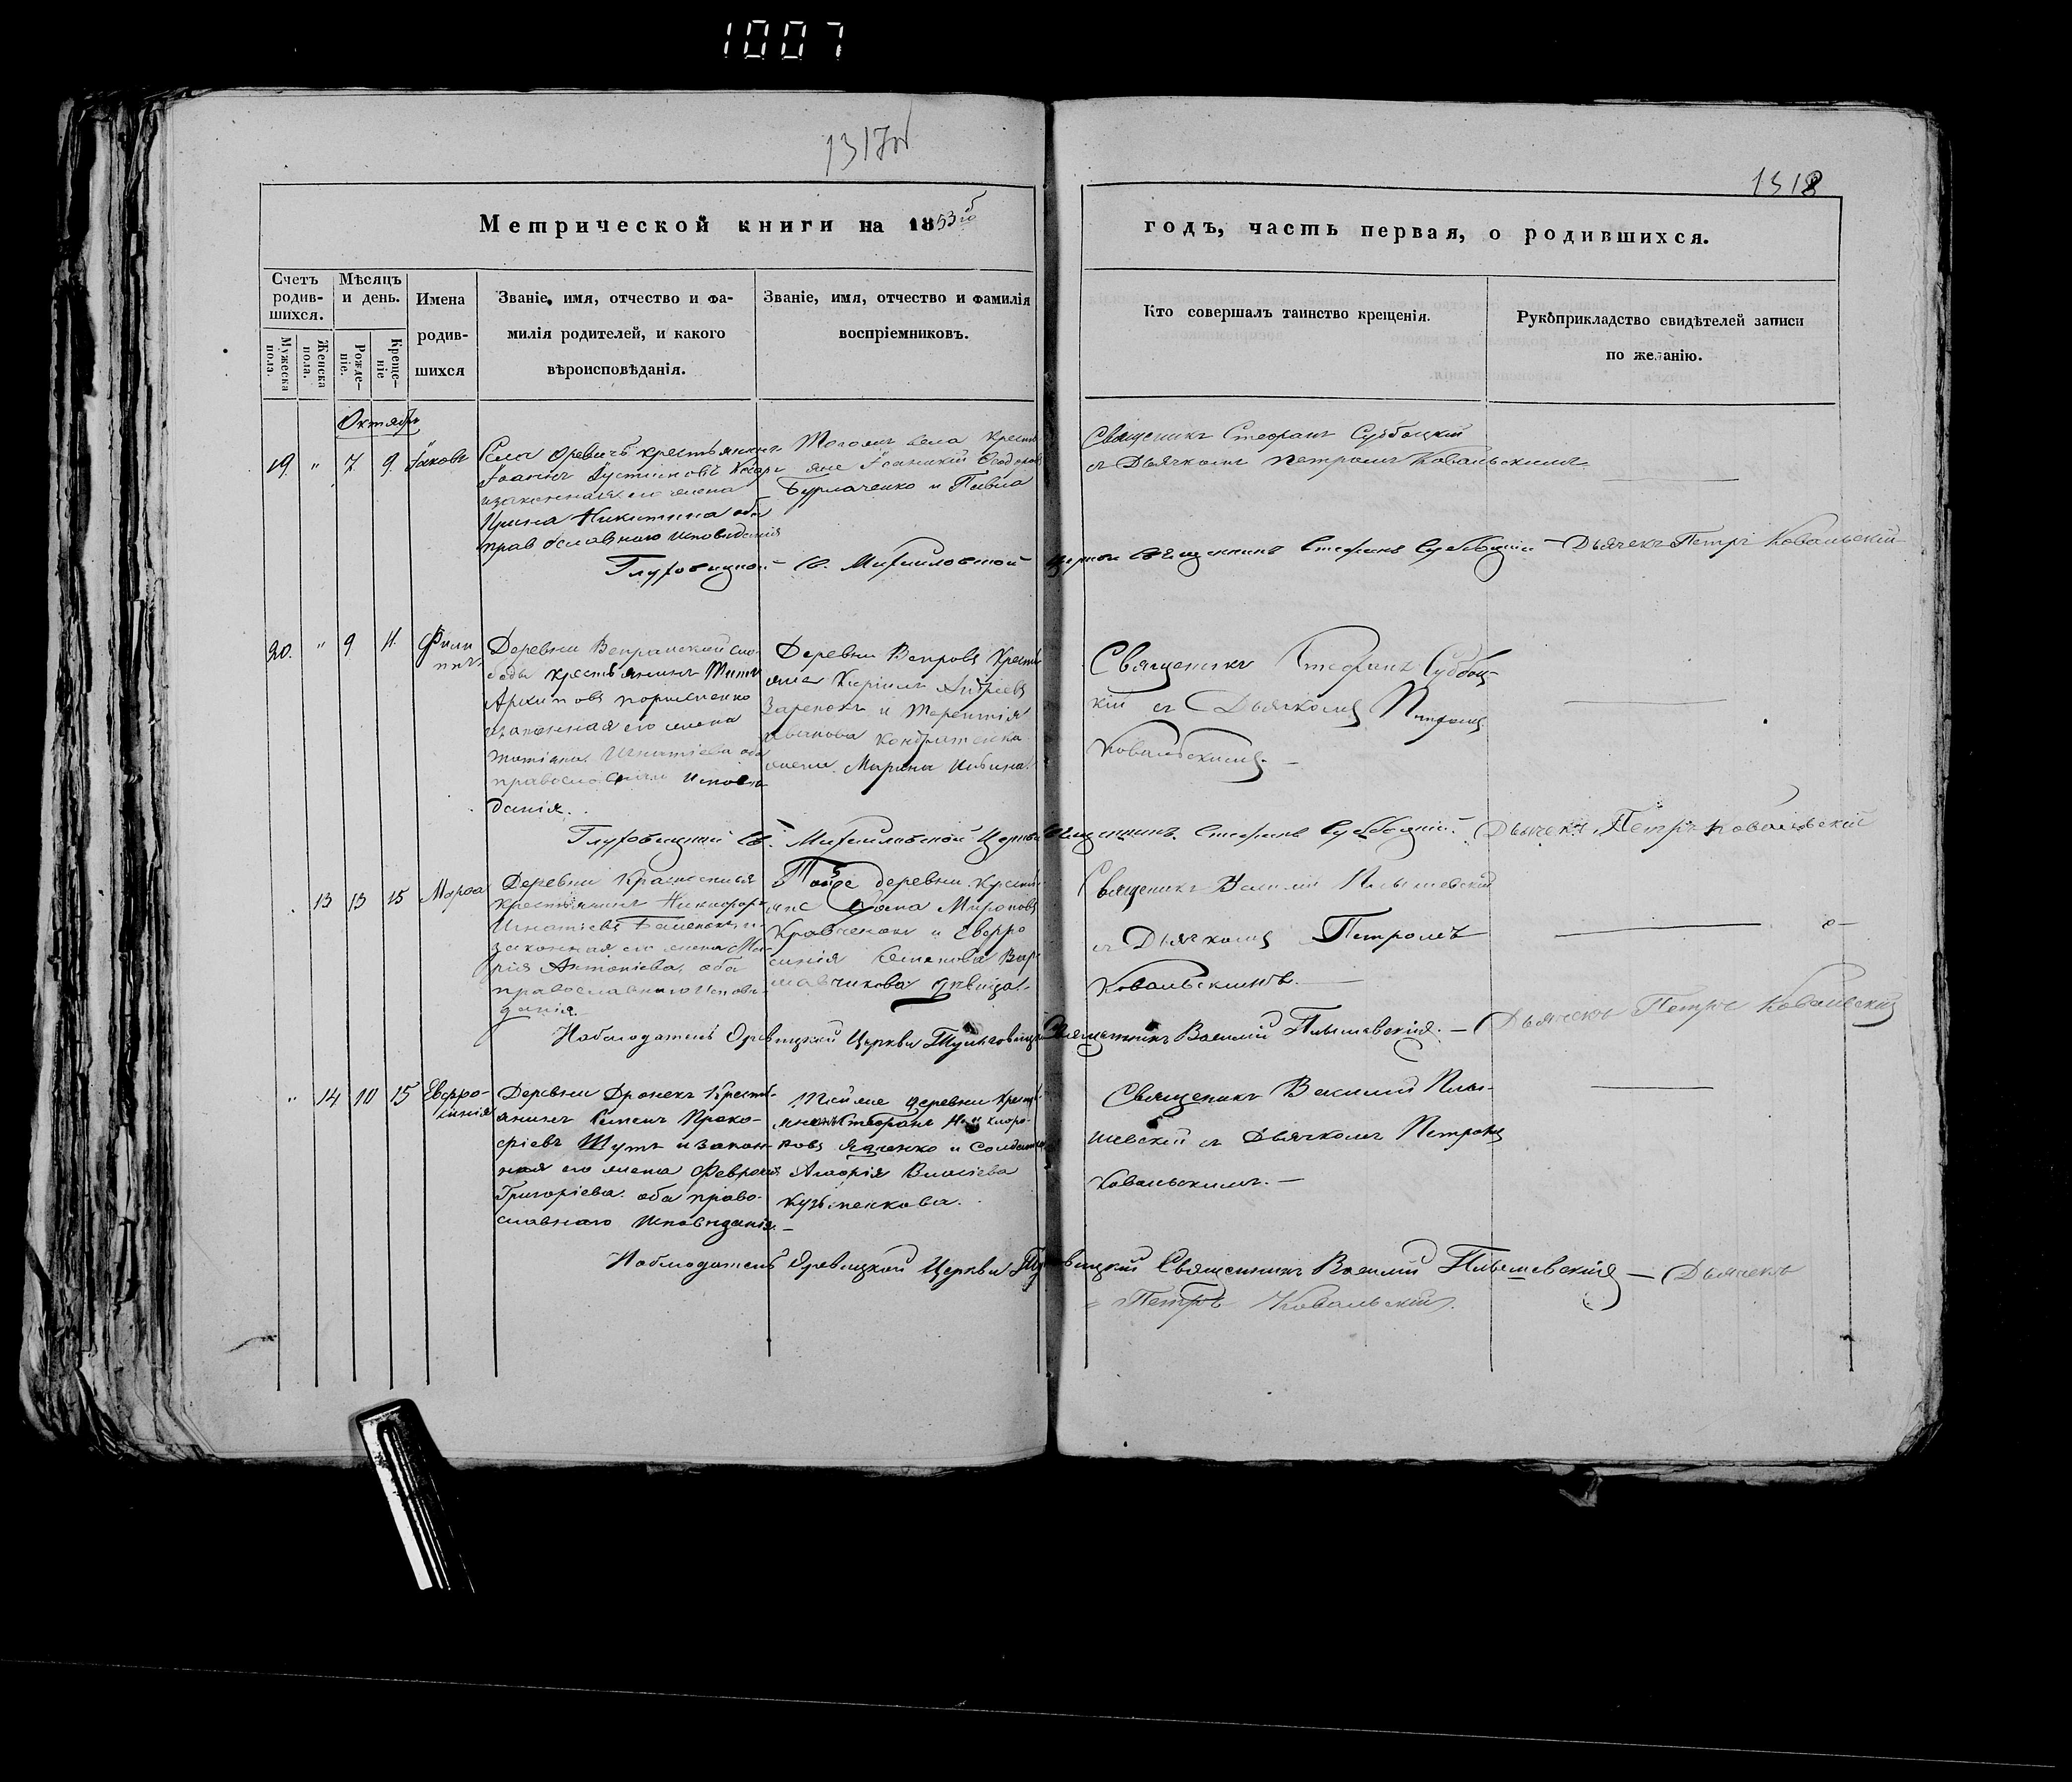 1007
1317об
1318
Метрической книги на 1853й годъ, часть первая, о родившихся.
Счетъ родив-
шихся.
Мужеска пола.
Женска пола.
Мѣсяцъ
и день.
Рожде-
ніе.
Креще-
ніе
Имена
родив-
шихся
Званіе, имя, отчество и фа-
милія родителей, и какого
вѣроисповѣданія.
Званіе, имя, отчество и фамилія
воспріемниковъ.
Кто совершалъ таинство крещенія.
Рукоприкладство свидѣтелей записи
по желанію.
Октябрь
19. " 7 9. Іаковъ
Села Оревичъ крестьянинъ
Іоаннъ Іустиновъ
и законная его жена
Ирина Никитина оба
православнаго исповѣданія
Тогожъ села кресть
яне Іоанникій Ѳеодоровъ
Бурлаченко и Павла
Священикъ Стефанъ Субботцкій
съ Дьячкомъ Петромъ Ковальскимъ.
Глуховицкой Св. Михаиловской церкви священникъ Стефанъ Субботцкій — Дьячекъ Петръ Ковальскій
20. " 9 11. Фили
ппъ
Деревни Вепранской сло-
боды крестьянинъ Титъ
Архиповъ
и законная его жена
Татіана Игнатіева оба
православнаго исповѣ
данія.
Деревни Вепровъ кресть
яне Кирилъ Андріевъ
Заренокъ и Терентія
Иванова Кондратенка
жена Марина
Священикъ Стефанъ Суббот-
кій съ Дьячкомъ Петромъ
Ковальскимъ. —
Глуховицкой Св. Михаиловской Церкви священникъ Стефанъ Субботцкій. Дьячекъ Петръ Ковальскій
13 13 15 Марѳа
Деревни Красноселья
крестьянинъ Никифоръ
Игнатіевъ и
законная его жена Ма-
рія Антоніева, оба
православнаго исповѣ-
данія.
Тойже деревни кресть-
яне Ѳома Мироновъ
Кравченокъ и Евфро
синія Семенова Вар-
девица.
Священикъ Василій Плышевскій
съ Дьячкомъ Петромъ
Ковальскимъ.
Наблюдатель Оревицкой Церкви Тульговицкій Священникъ Василій Плышевскій. — Дьячекъ Петръ Ковальскій
" 14 10 15 Евфро-
синія
Деревни Дронекъ кресть-
янинъ Семенъ Проко-
фіевъ Шутъ и закон-
ная его жена Феврония
Григоріева. оба право-
славнаго исповѣданія. —
Тойже деревни кресть
янинъ Стефанъ Никифоро-
въ Яценко и Солдатка
Агафія Власіева
Кузьменкова.
Священикъ Василій Плы-
шевскій съ Дьячкомъ Петромъ
Ковальскимъ. —
Наблюдатель Оревицкой Церкви Тульговицкій Священникъ Василій Плышевскій — Дьячекъ
Петръ Ковальскій.